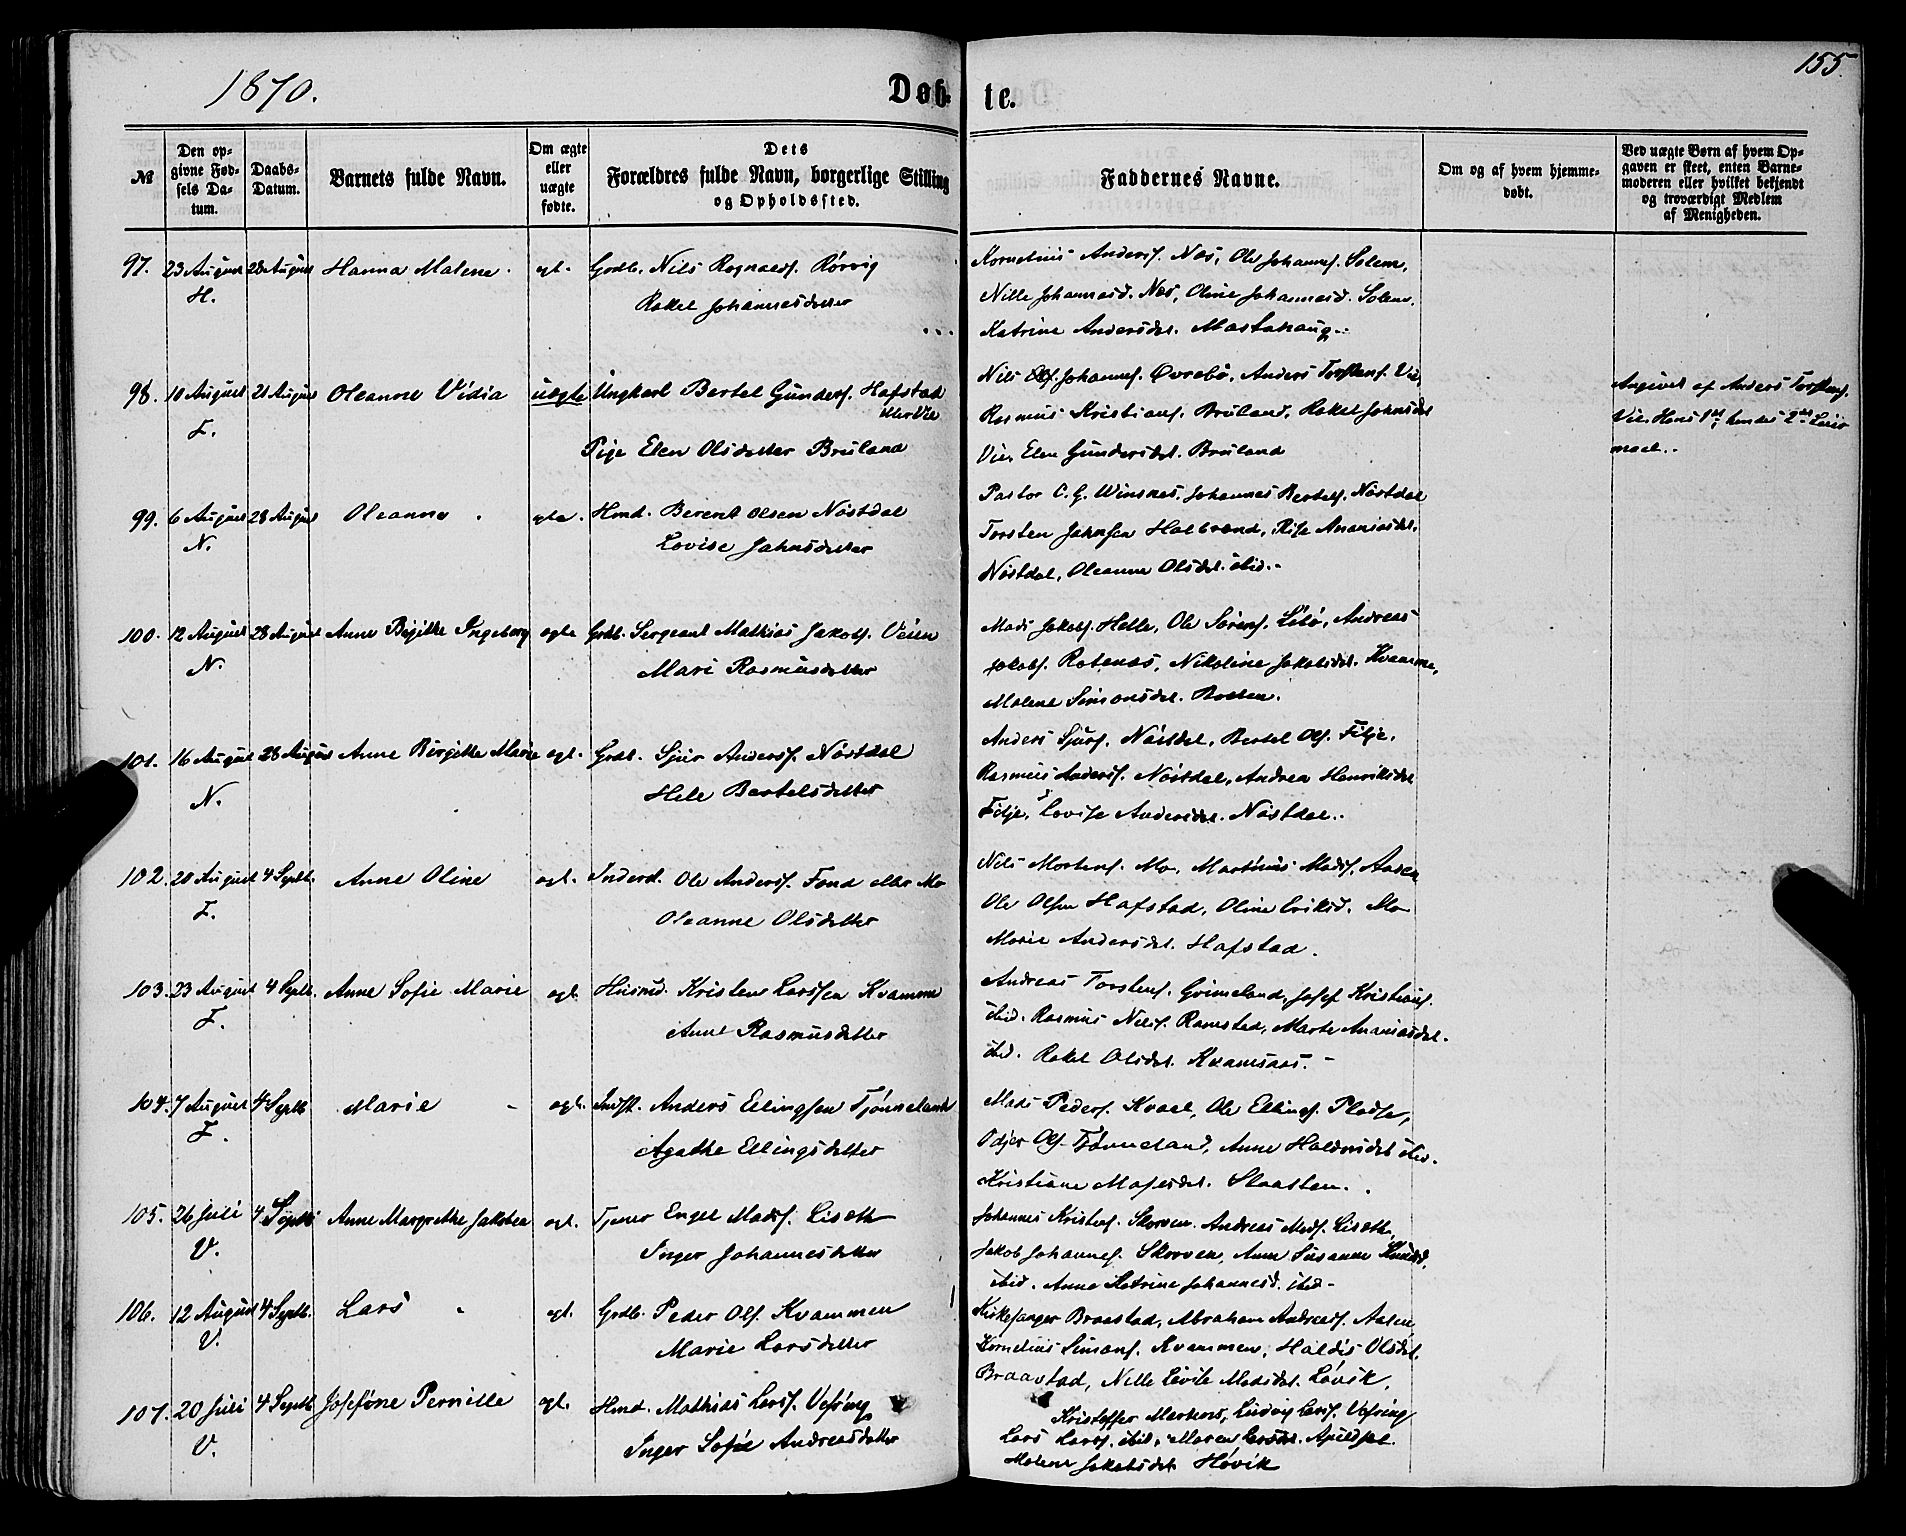 1870.
Døb-
te.
155.
№
Den op-
givne Fød-
sels Da-
tum.
Daabs-
Datum.
Barnets fulde Navn.
Om ægte
eller
uægte
fødte.
Dets
Forældres fulde Navn, borgerlige Stilling
og Opholdssted.
Faddernes Navne.
Om og af hvem hjemme-
døbt.
Ved uægte Børn af hvem Op-
gaven er skeet, enten Barne-
moderen eller hvilket bekjendt
og troværdigt Medlem
af Menigheden.
97. 23 August 28 August Hanna Malene. egt. Grdb. Nils Rognaldf. Rørvig
H.
Rakel Johannesdatter
Kornelius Andersf. Nes, Ole Johannesf. Solem,
Nille Johannesd. Nes, Oline Johannesd. Solem,
Katrine Andersdat. Mastahaug.
98. 10 August 21 August Oleanne Vidia uægte Ungkarl Bertel Gundersf. Hafstad
eller Vie
F.
Pige Elen Olsdatter Bruland
Nils Johannesf. Øvrebø, Anders Torstensf. Vie,
Rasmus Kristiansf. Bruland, Rakel Johnsdat
Vie, Elen Gundersdat. Bruland
Angivet af Anders Torstensf.
Vie. Hans 1ste, hendes 2det Leier
maal.
99. 6 August 28 August Oleanna. egte. Hmd. Berent Olsen Nøstdal
N.
Lovise Johnsdatter
Pastor C. G. Winsnes, Johannes Bertelf. Nøstdal
Torsten Johnsen Halbrend, Ananiasdat.
Nøstdal, Oleanne Olsdat. ibid.
100. 12 August 28 August Anne Birgitte Ingeborg egte Grdb. Sergeant Mathias Jakobf. Veien
N.
Mari Rasmusdatter
Mads Jakobf. Helle, Ole Sørensf. Andreas
Jakobf. Rotenes, Nikoline Jakobsdat. Kvamme,
Malene Simonsdat.
101. 16 August 28 August Anne Birgitte Marie egt. Grdb. Sjur Andersf. Nøstdal
N.
Hele Bertelsdatter
Anders Sjursf. Nøstdal, Bertel Olsf. Fitje,
Rasmus Andersf. Nøstdal, Andrea Henriksdat
Fitje, Lovise Andersdat. Nøstdal.
102. 20 August 4 Septb. Anne Oline egt. Inderst. Ole Andersf. Fond eller Mo
F.
Oleanne Olsdatter
Nils Mortensf. Mo, Martinus Madsf. Aasen
Ole Olsen Hafstad, Oline Eriksd. Mo
Marie Andersdat. Hafstad.
103. 23 August 4 Septb. Anne Sofie Marie egt. Husmd. Kristen Larssen Kvamme
F.
Anne Rasmusdatter
Andreas Torstensf. Grimeland, Josef Kristiansf.
ibid. Rasmus Nilsf. Ramstad, Marte Ananiasdat.
ibd. Rakel Olsdat. Kvamsaas.
104. 7 August 4 Septb Marie egt. Indst. Anders Ellingsen Tjønneland
F.
Agathe Ellingsdatter
Mads Pedersf. Kvaal, Ole Ellingf.
Olsf. Tjønneland, Anne Haldorsdat ibid.
Kristiane
105. 26 Juli 4 Septb Anne Margrethe Jakobea egt. Tjener Engel Madsf. Liseth
V.
Inger Johannesdatter
Johannes Kristensf. Skorven, Andreas Madsf. Liseth,
Jakob Johannesf. Skorven, Anne Susanne
ibid. Anne Katrine Johannesd. ibid.
106. 12 August 4 Septb. Lars egt. Grdb. Peder Olsf. Kvammen
V.
Marie Larsdatter
Kirkesanger Braastad, Abraham Andreasf. Aasen,
Kornelius Simonsf. Kvammen, Haldis Olsdat.
Braastad, Nille Lovise Madsdat. Løvik,
107. 20 Juli 4 Septb Josefine Pernille egt. Hmd. Mathias Larsf. Vefring
V.
Inger Sofie Andreasdatter
Kristoffer Martens, Ludvig Larsf. Vefring
Lars Larsf. ibid, Maren Larsdat.
Malene Jakobsdat Høvik